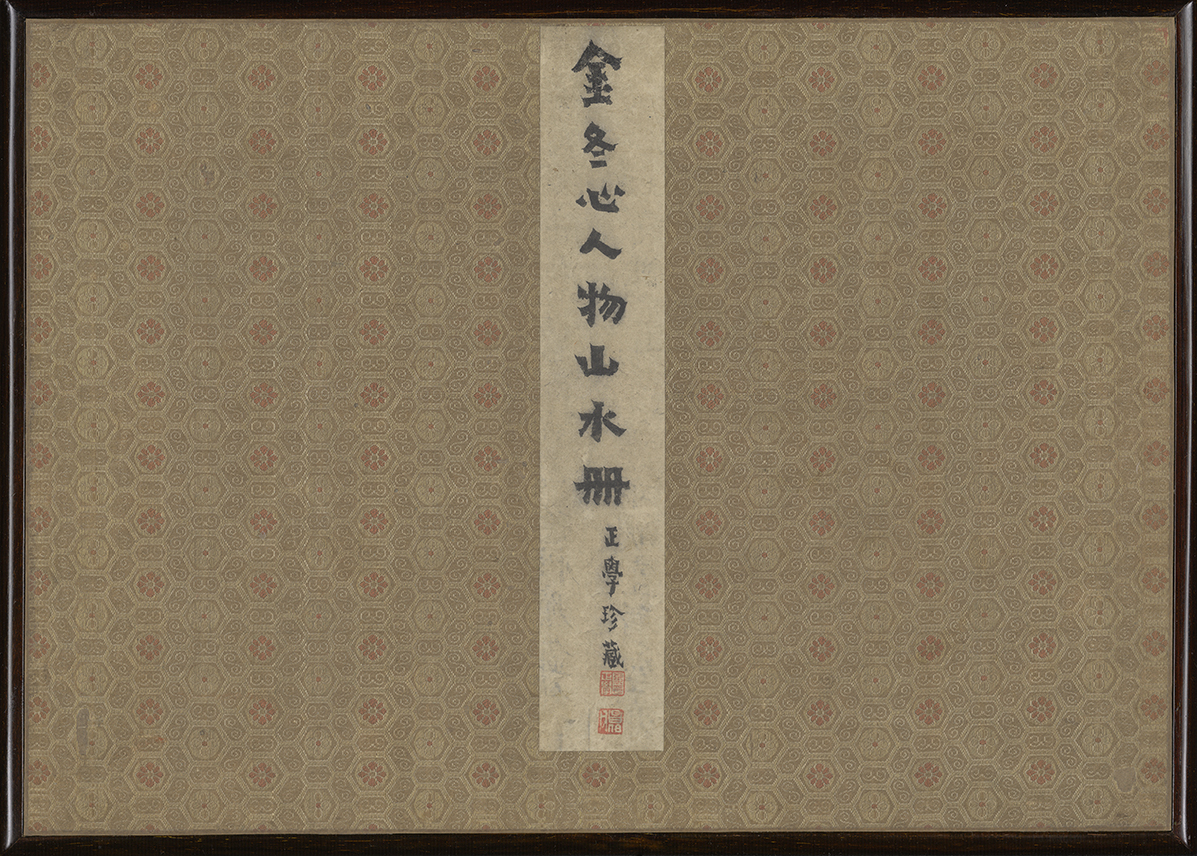 金冬心人物山水冊
正學珍藏